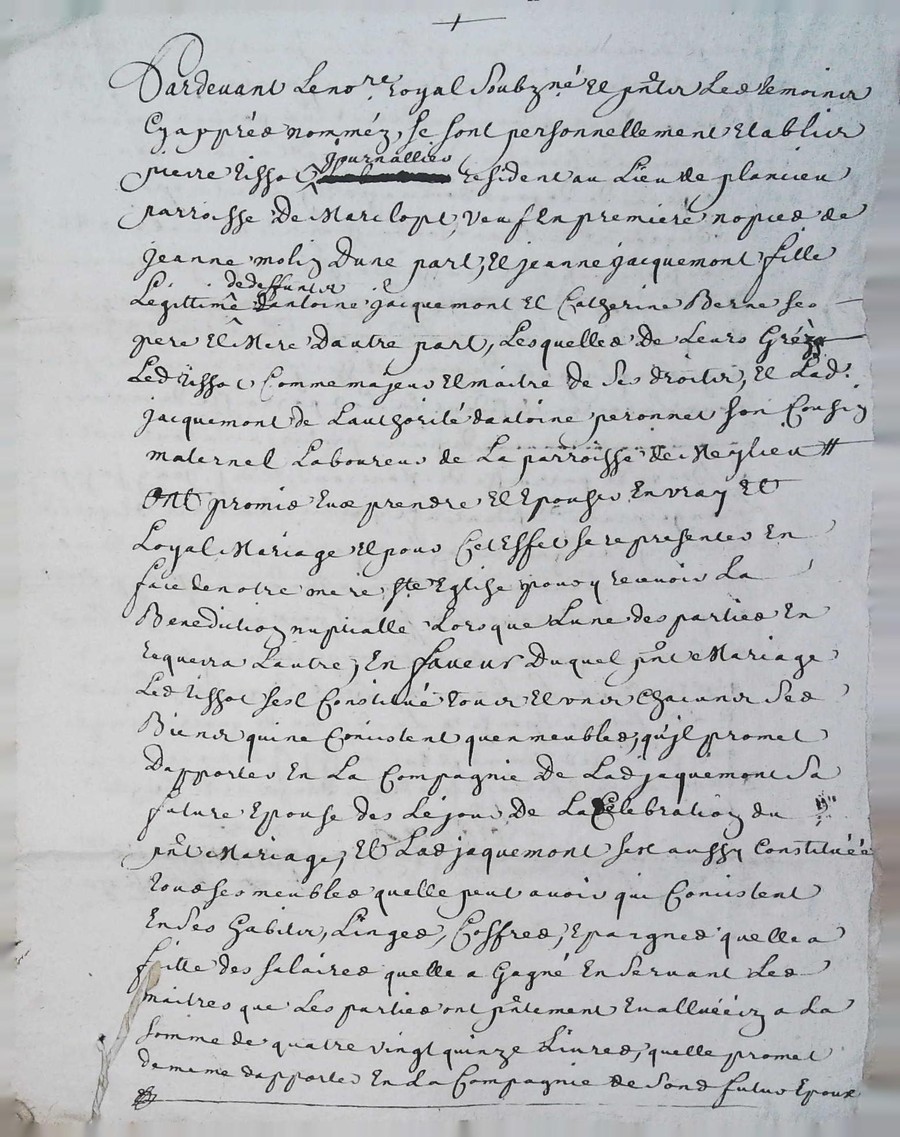 Pardevant le no.re royal soubzné et pnts les temoins
cy apprés nomméz, se sont personnellement etablis
journallier
pierre tissot resident au lieu de plancieu
parroisse de Marclopt, veuf en premiere nopces de
jeanne molin dune part, et jeanne jacquemont fille
de deffunts
legittime dantoine jacquemont et Catherine Berne ses
pere et Mere dautre part, lesquelles de leurs gréz
led tissot comme majeur et maitre de ses droits, et lad.
jacquemont de lauthorité dantoine peronnet son cousin
maternel laboureur de la parroisse de Meylieu
ont promis eux prendre et epouser en vray et
loyal Mariage et pour cet effet se representer en
face de notre mere ste Eglise pour y recevoir la
Benediction nuptialle lorsque lune des parties en
requera lautre, en faveur duquel pnt Mariage
led tissot sest constitué tous et uns chacuns ses
Biens qui ne concistent quen meubles, qu'jl promet
dapporter en la compagnie de lad jaquemont sa
future epouse des le jour de la celebration du
pnt Mariage, et lad jaquemont sest aussy constituéé
tous ses meubles quelle peut avoir qui concistent
en ses habits, linges, coffres, epargnes quelle a
faitte des salaires quelle a gagné en servant les
maitres que les parties ont pntement evallués a la
somme de quatre vingt quinze livres, quelle promet
de meme dapporter en la compagnie de sond futur epoux